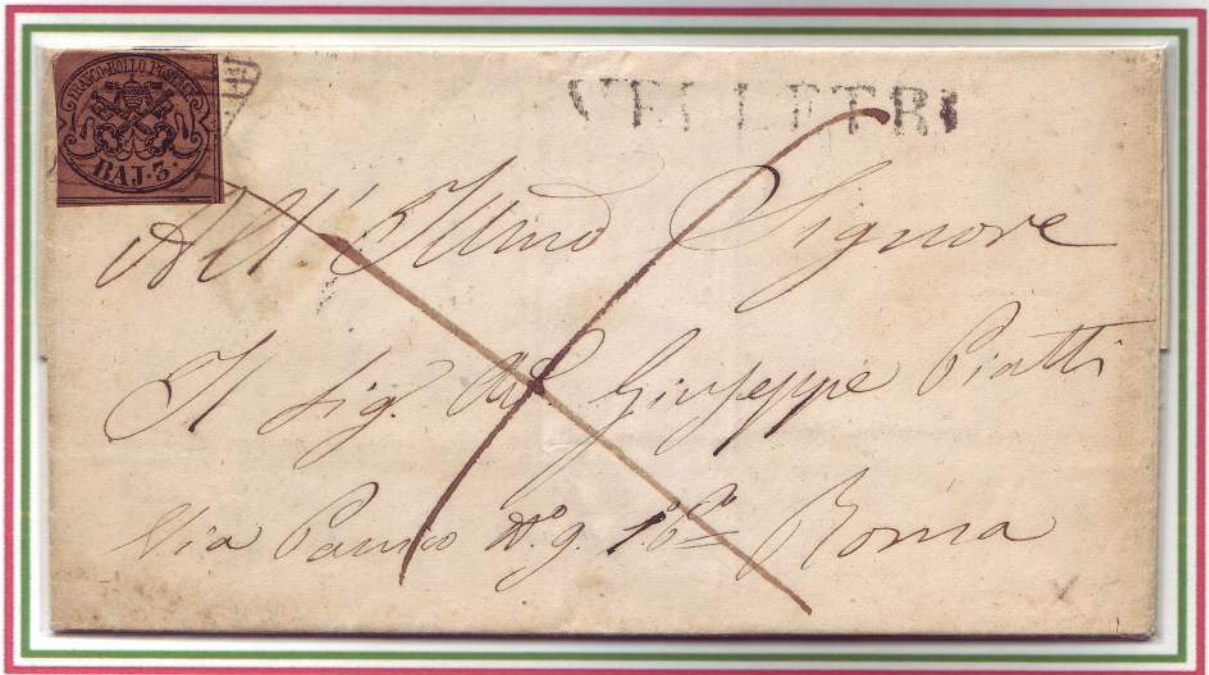 FRANCO BOLLO POSTALE
BAJ. 3.
VELLETRI
All' Illmo Signore
Il Sig. Giuseppe Piatti
Via Panico N.º 9. 1º Pº Roma